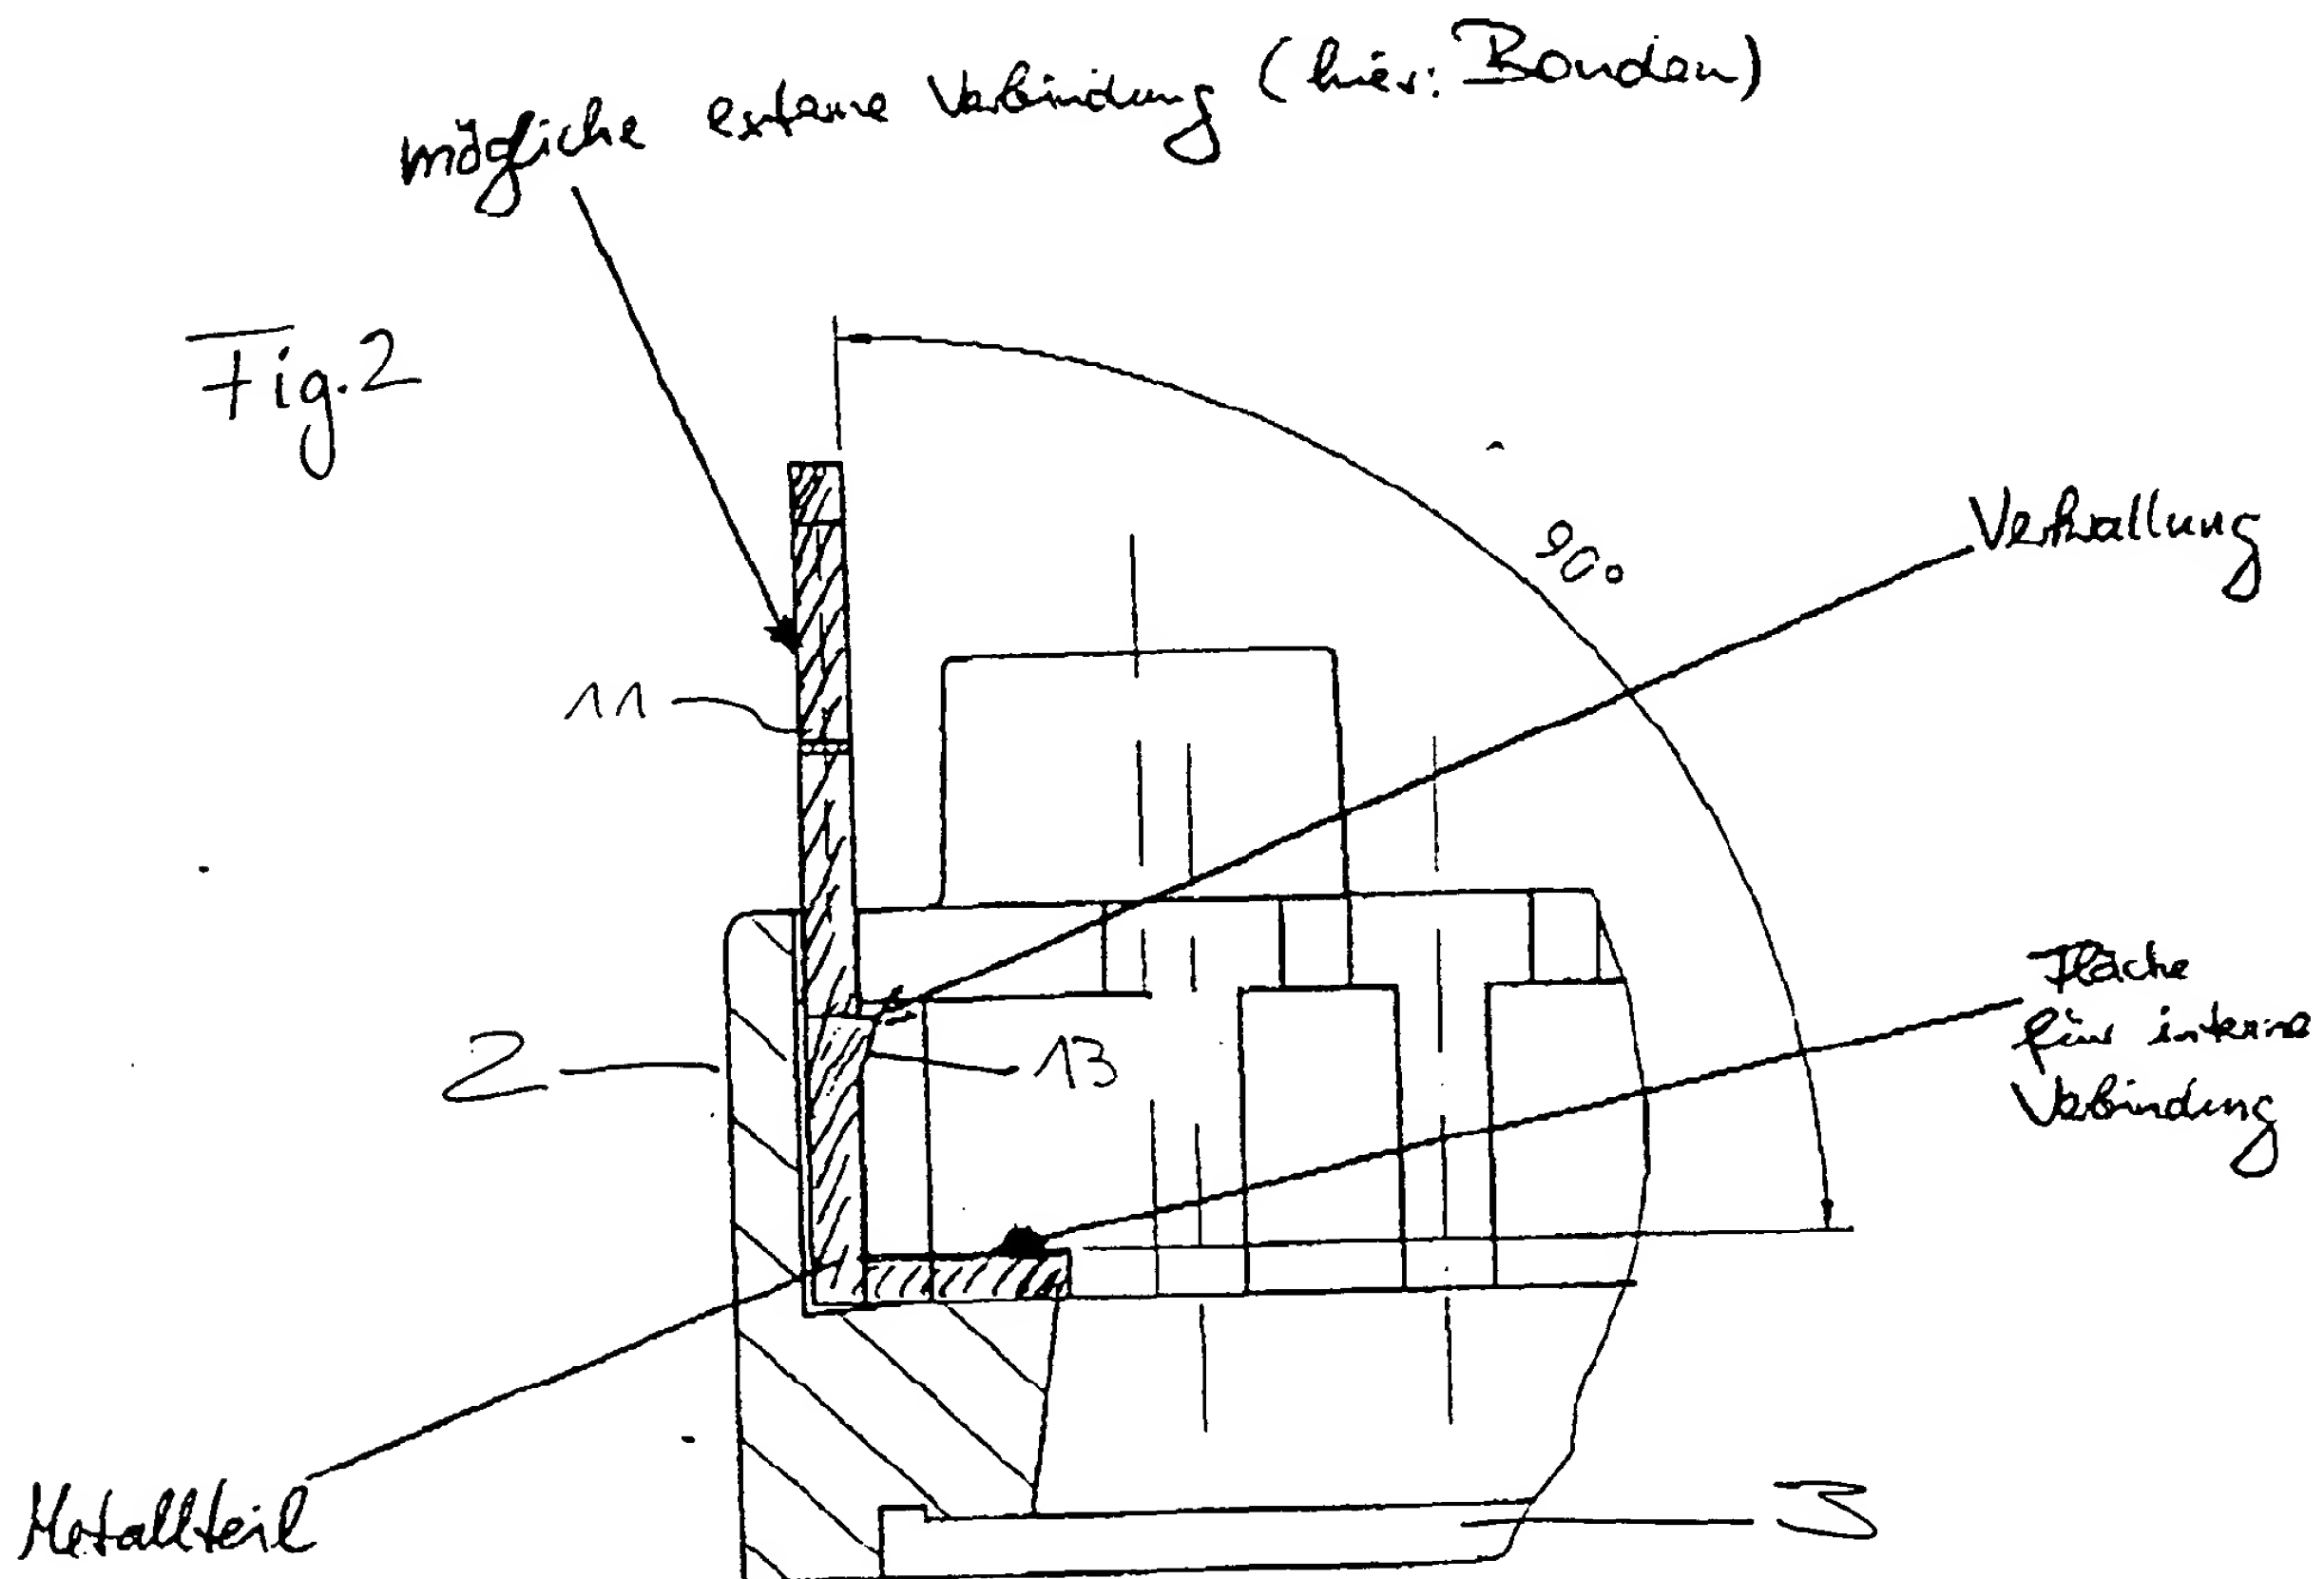 mögliche externe Verbindung (hier: Bonden)
Fig.2
90°
Verkrallung
11
Fläche
für interne
Verbindung
2
13
Metallteil
3